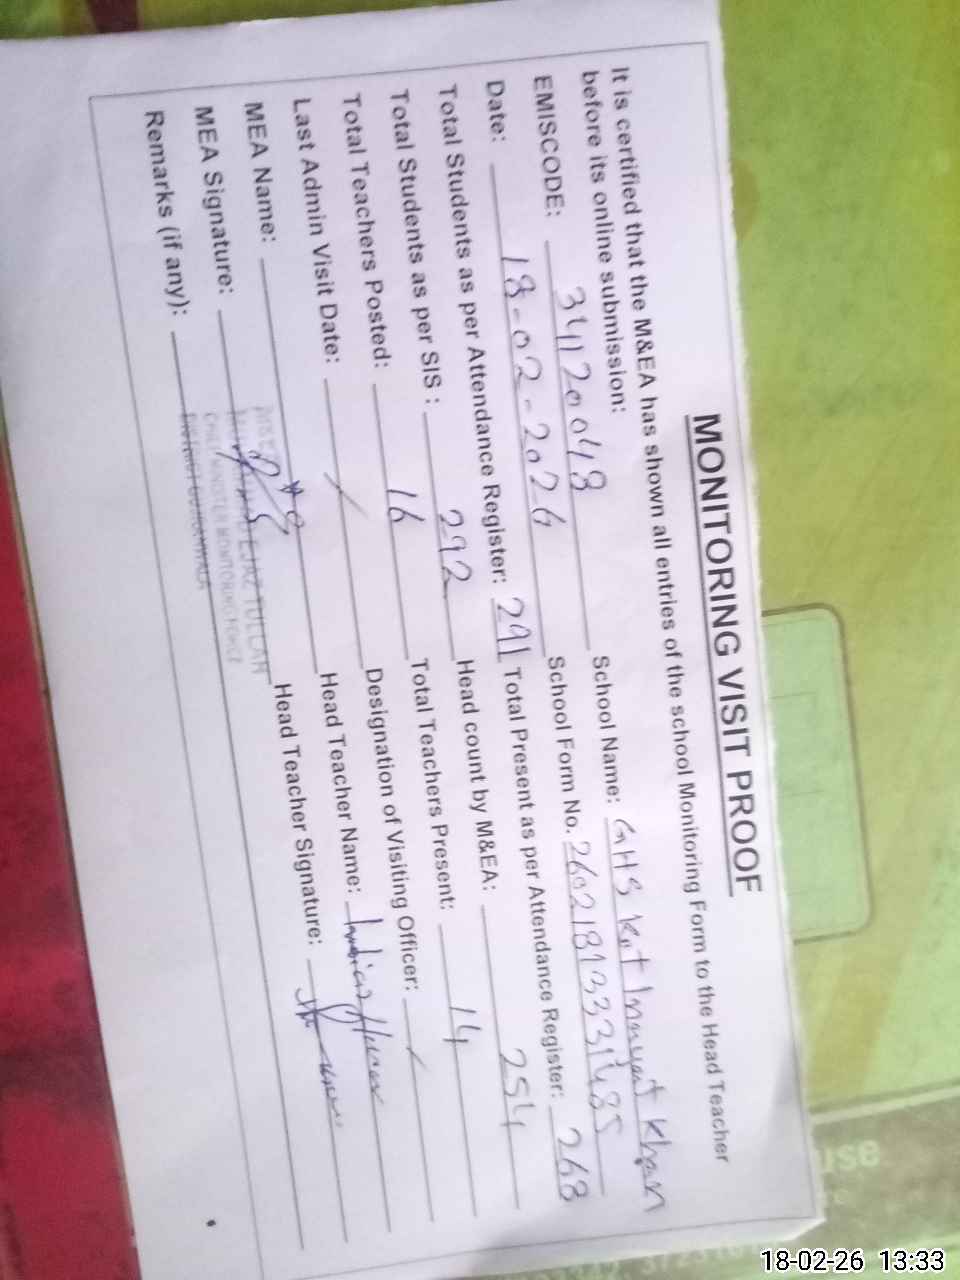 MONITORING VISIT PROOF
It is certified that the M&EA has shown all entries of the school Monitoring Form to the Head Teacher
before its online submission:
EMISCODE: 34120048 School Name: GHS Kot Inayat Khan
Date: 18-02-2026 School Form No. 26021813331485
Total Students as per Attendance Register: 291 Total Present as per Attendance Register: 268
Total Students as per SIS : 292 Head count by M&EA: 254
Total Teachers Posted: 16 Total Teachers Present: 14
Last Admin Visit Date: / Designation of Visiting Officer: /
MEA Name: Head Teacher Name:
MEA Signature: Head Teacher Signature:
Remarks (if any):
CHIEF MINISTER MONITORING FORCE
DISTRICT GUJRANWALA
use
18-02-26 13:33